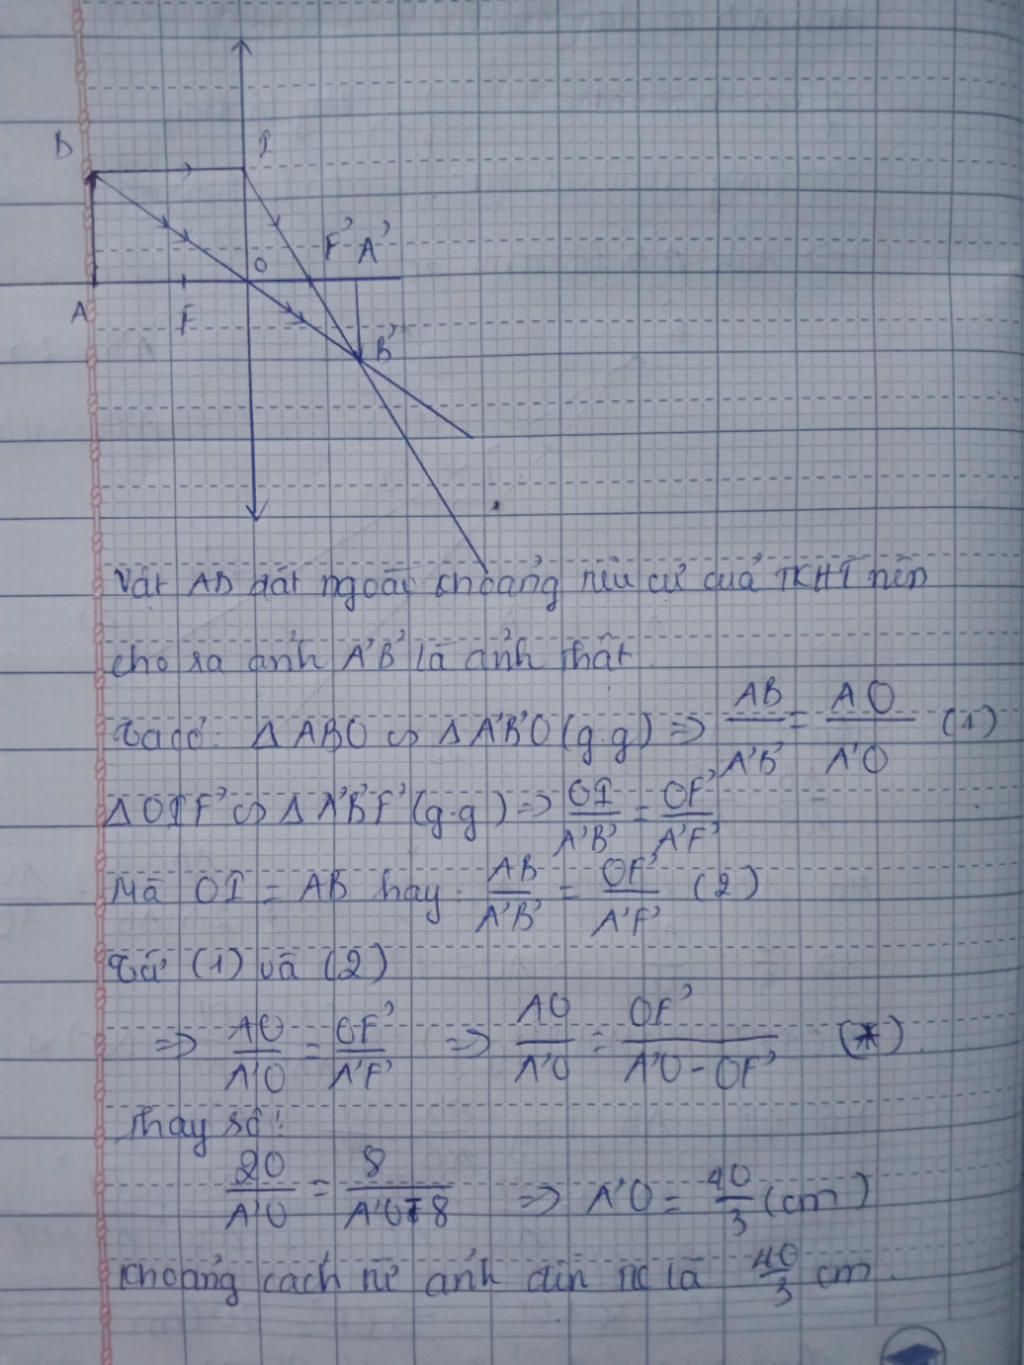 B I
O F' A'
A F
B'
Vật AB đặt ngoài khoảng tiêu cự của TKHT nên
cho ra ảnh A'B' là ảnh thật
Ta có: Δ ABO ∽ Δ A'B'O (g.g) => AB/A'B' = AO/A'O (1)
Δ OIF' ∽ Δ A'B'F' (g.g) => OI/A'B' = OF'/A'F'
Mà OI = AB hay: AB/A'B' = OF'/A'F' (2)
Từ (1) và (2)
=> AO/A'O = OF'/A'F' => AO/A'O = OF'/A'O - OF' (*)
Thay số:
20/A'O = 8/A'O-8 => A'O = 40/3 (cm)
Khoảng cách từ ảnh đến tk là 40/3 cm.